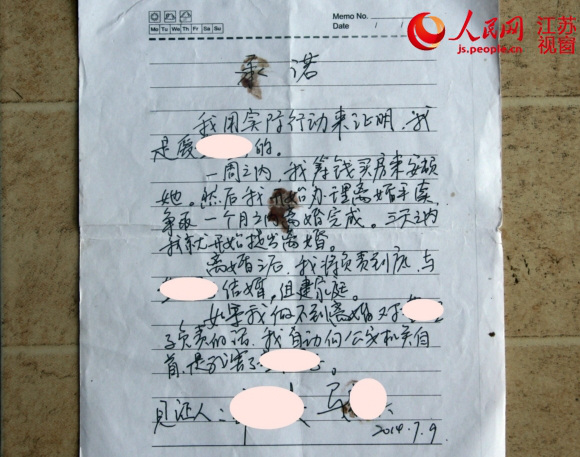 人民网 江苏视窗
js.people.cn
Memo No.
Mo Tu We Th Fr Sa Su
Date / /
承诺
我用实际行动来证明,我
是爱 的。
一周之内,我筹钱买房来安顿
她。然后我开始办理离婚手续,
争取一个月之内离婚完成。三天之内
我就开始提出离婚。
离婚之后,我将负责到底,与
结婚,组建家庭。
如果我做不到离婚对于
负责的话,我自动向公安机关自
首,是我害了 。
见证人:
2014.7.9